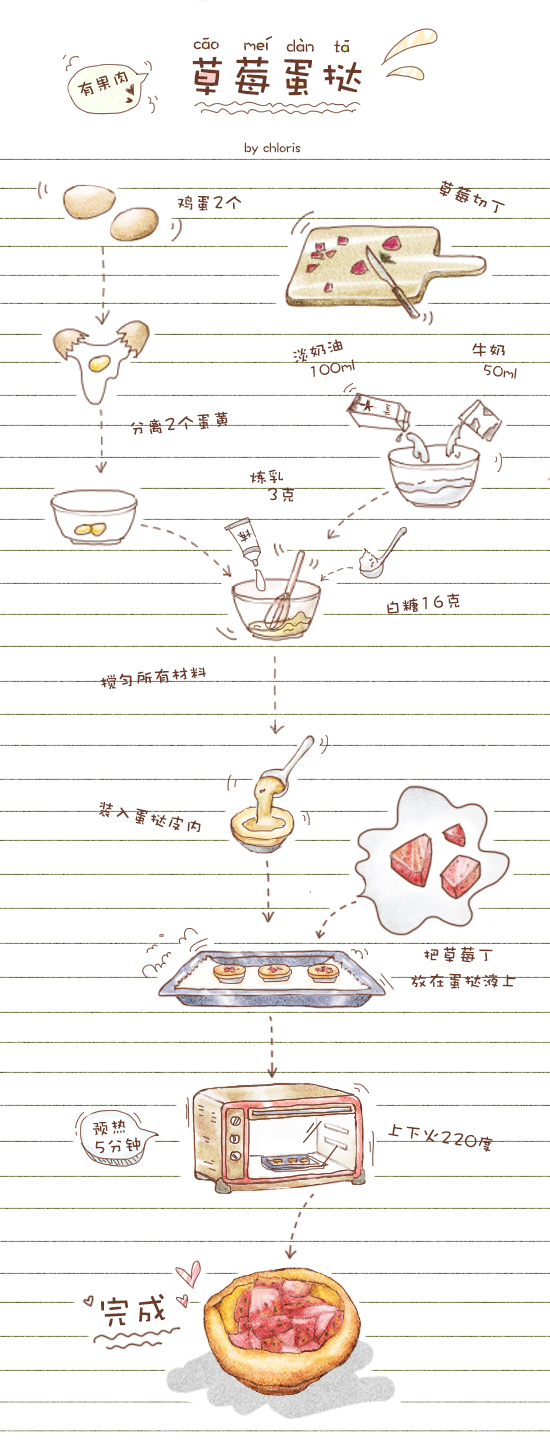 cāo meí dàn tā
有果肉
草莓蛋挞
by chloris
鸡蛋2个
草莓切丁
淡奶油
100ml
牛奶
50ml
分离2个蛋黄
炼乳
3克
白糖16克
搅匀所有材料
装入蛋挞皮内
把草莓丁
放在蛋挞液上
预热
5分钟
上下火220度
完成